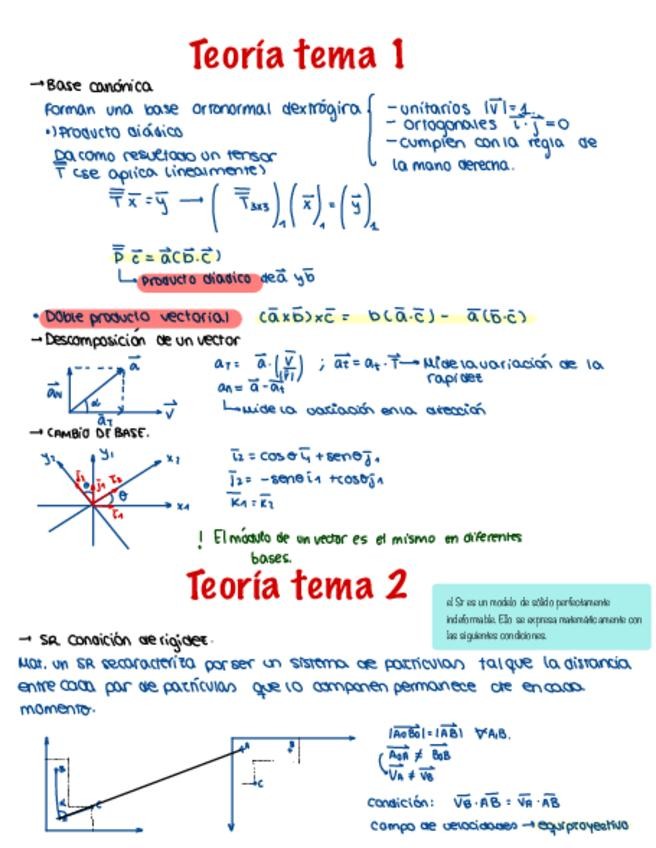 Teoría tema 1
→ Base canónica
Forman una base ortonormal dextrógira { - unitarios |v̄|=1.
- ortogonales ī·j̄=0
- cumplen con la regla de
la mano derecha.
•) Producto diádico
Da como resultado un tensor
T̄ (se aplica linealmente)
T̿ x̄ = ȳ → ( T̿₃ₓ₃ ) ( x̄ )₁ = ( ȳ )₁
P̿ c̄ = ā(b̄·c̄)
↳ Producto diádico de ā y b̄
• Doble producto vectorial (ā x b̄) x c̄ = b(ā·c̄) - ā(b̄·c̄)
→ Descomposición de un vector
a_T = ā·(v̄/|v̄|) ; ā_t = a_t · T̄ → Mide la variación de la
rapidez
a_n = ā - ā_t
↳ Mide la variación en la dirección
ā_N ā α ā_T v̄
→ CAMBIO DE BASE.
y₂ y₁ x₂ j₂ j₁ ī₂ θ ī₁ x₁
ī₂ = cosθ ī₁ + senθ j̄₁
j̄₂ = -senθ i₁ + cosθ j₁
k̄₁ = k̄₂
! El módulo de un vector es el mismo en diferentes
bases.
Teoría tema 2
el Sr es un modelo de sólido perfectamente
indeformable. Ello se expresa matemáticamente con
las siguientes condiciones.
→ SR Condición de rigidez.
Mat. un SR se caracteriza por ser un sistema de partículas tal que la distancia
entre cada par de partículas que lo componen permanece cte en cada
momento.
|A₀B₀| = |AB| ∀A,B.
A₀A ≠ B₀B
V_A ≠ V_B
condición: V_B · AB = V_A · AB
campo de velocidades → equiproyectivo